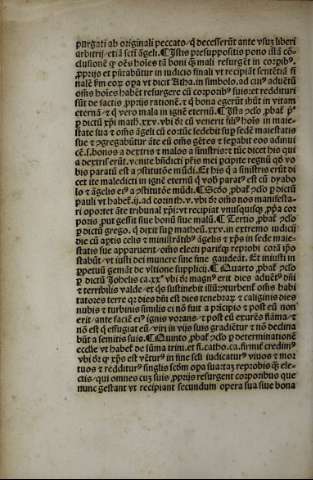 purgati ab originali peccato. q̄ decesserūt ante vsuȝ liberi
arbitrij. etiā sctī āgeli. ¶ Istis presuppositis pono istā cō-
clusionē qꝫ oēs hoīes tā boni qꝫ mali resurgēt in corpibꝰ.
ꝓprijs et pitrabūtur in iudicio finali vt recipiāt sentētiā fi
nalē km̄ eoꝝ opa vt dicit Atha. in simbolo. ad cuiꝰ aduētū
oīns hoīes habēt resurgere cū corporibꝰ suis. et reddituri
sūt de factis ꝓprijs rationē. et q̄ bona egerūt ibūt in vitam
eternā. et q̄ vero mala in ignē eternū. ¶ Ista ꝓclo ꝓbaf̄ pꝰ
p dictū xp̄i math. xxv. vbi dr̄ cū venerit filiꝰ hoīs in maie-
state sua et oīns āgeli cū eo: tūc sedebit sup sedē maiestatis
sue et ꝯgregabūtur āte eū oīns gētes et sepabit eos adinui
cē. s. bonos a dextris et malos a sinistris: et tūc dicet his qui
a dextris erūt. venite bn̄dicti pr̄is mei pcipite regnū qd̄ vo
bis paratū est a ꝯstitutōe mūdi. Et his q̄ a sinistris erūt di
cet ite maledicti in ignē eternū q̄ vobꝭ paratꝰ est cū dyabo
lo et āgelis eiꝰ a ꝯstitutōe mūdi. ¶ Scd̄o ꝓbaf̄ ꝓclo p dictū
pauli vt habet̄. ij. ad corinth. v. vbi dr̄ oīns nos manifesta-
ri oportet āte tribunal xp̄i: vt recipiat vnusquisqꝫ ꝓpria cor
poris. put gessit siue bonū siue malū. ¶ Tertio ꝓbaf̄ ꝓclo
p dictū grego. q̄ dixit sup math eū. xxv. in extremo iudicij
die cū xp̄tis celis et ministrātibꝰ āgelis et xp̄s in sede maie-
statis sue apparuerit. oīns electi pariẽ reprobi corā ipō
stabūt. vt iusti dei munere sine fine gaudeāt. sct̄ iniusti in
ppetuū gemāt de vltione supplicij. ¶ Quarto ꝓbaf̄ ꝓclo
p dictū Johelis ca. xxꝰ vbi dr̄ magnꝰ erit dies aduētꝰ dn̄i
et terribilis valde. et qs sustinebit illū: ꝯturbent̄ oīns habi
tatores terre qꝛ dies dn̄i est dies tenebraꝝ et caliginis dies
nubis et turbinis similis ei nō fuit a pricipio et post eū nonꝰ
erit. ante faciē eiꝰ ignis vorans. et post eū exurēs flāma. et
nō est q̄ effugiat eū. viri in vijs suis gradiētur et nō declina
būt a semitis suis. ¶ Quinto ꝓbaf̄ ꝓclo p determinationē
ecclīe vt habet̄ de sūma trini. et fi. catho. ca. firmit̄ credimꝰ
vbi dr̄ qꝫ xp̄s est vētrꝰ in fine scl̄i iudicaturꝰ viuos et mor
tuos et redditurꝰ singlis scd̄m opa sua: taȝ reprobis qꝫ ele-
ctis. qui omnes cuȝ suis ꝓprijs resurgent corporibus que
nunc gestant vt recipiant secundum opera sua siue bona